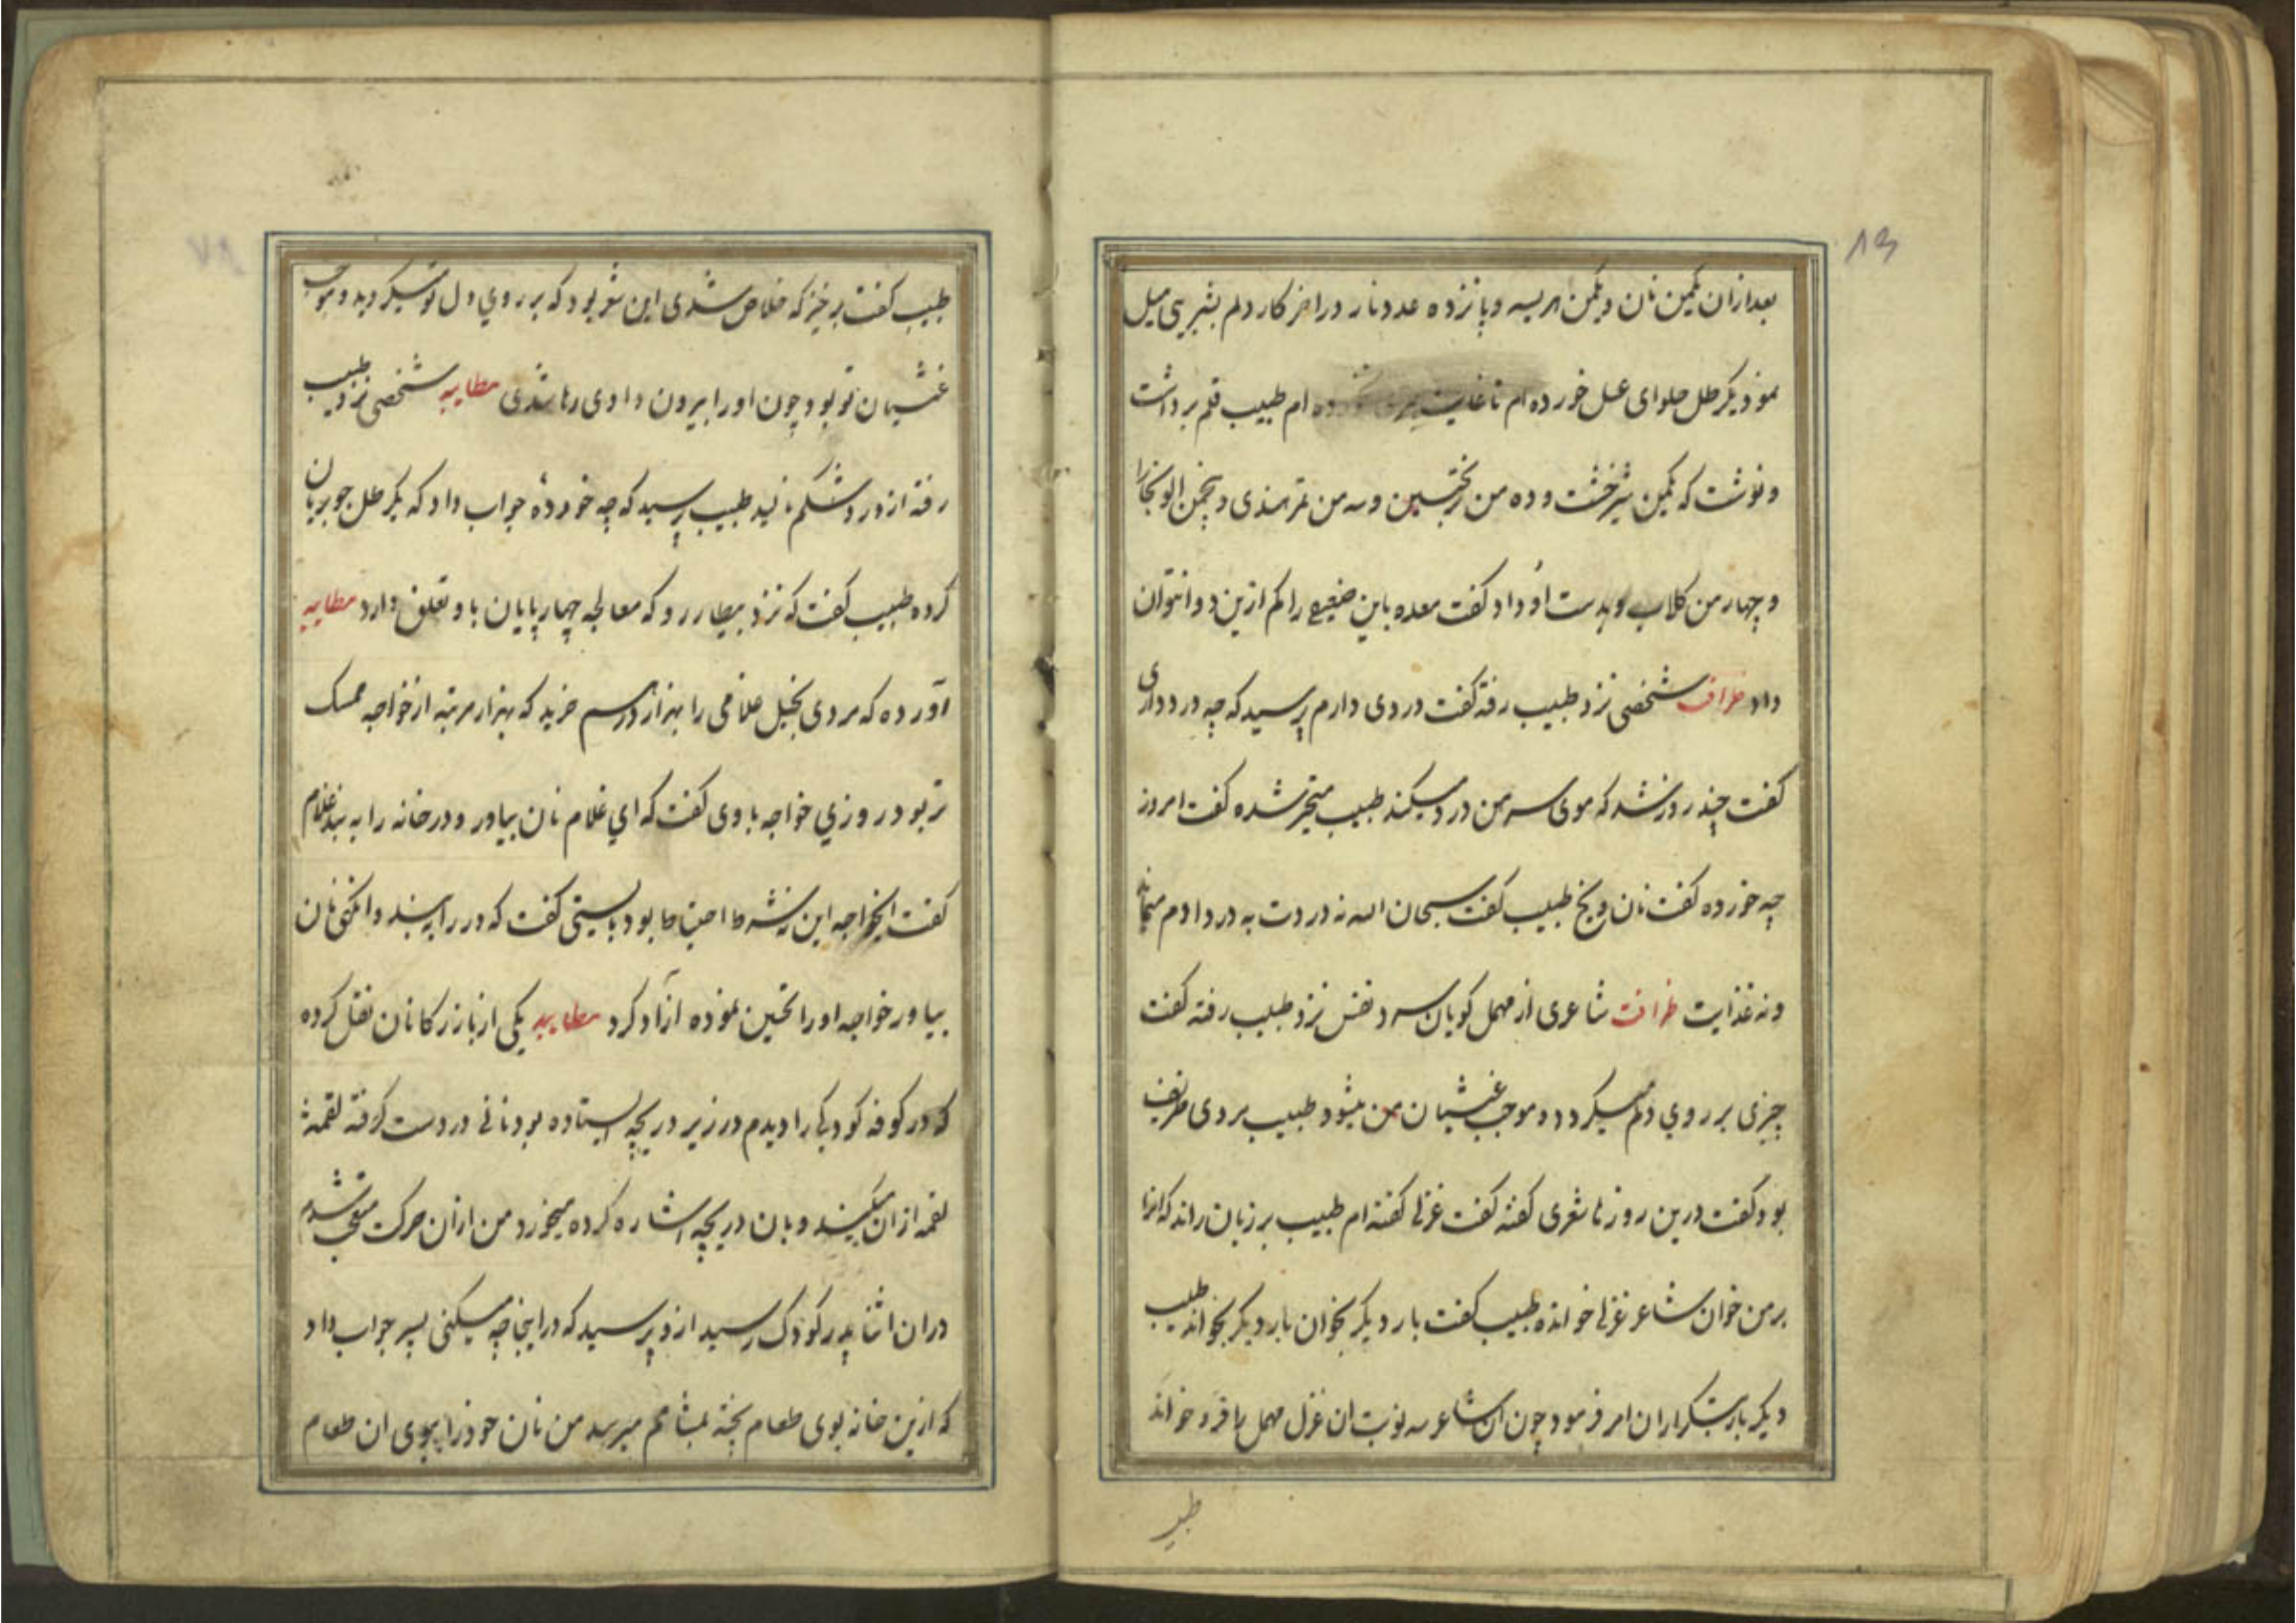 بعد ازان یکمن نان و یکمن هریسه و پانزده عدد نار در اخر کار دلم بشیرینی میل
نمود یکرطل حلوای عسل خورده ام تا غایت ام طبیب قلم برداشت
و نوشت که یکمن شیرخشت و ده من ترنجبین و سه من تمرهندی و پنجمن الو بخارا
و چهار من کلاب و بدست او داد کفت معده باین ضعیفی را کم ازین دوا نتوان
داد ظرافت شخصی نزد طبیب رفته کفت دردی دارم پرسید که چه درد داری
کفت چند روز شد که موی سر من درد میکند طبیب متحیر شده کفت امروز
چه خورده کفت نان و یخ طبیب کفت سبحان الله نه دردت به درد ادم میماند
و نه غذایت ظرافت شاعری از مهمل کویان سرد نفس نزد طبیب رفته کفت
چیزی بر روي دلم میکردد و موجب غشیان من میشود طبیب مردی ظریف
بود کفت درین روزها شعری کفته کفت غزلی کفته ام طبیب بر زبان راند که انرا
بر من خوان شاعر غزلی خوانده طبیب کفت بار دیکر بخوان بار دیکر بخواند طبیب
دیکر بار بتکرار ان امر فرمود چون ان شاعر سه نوبت ان غزل مهمل با فرد خواند
طبیـ
۸۳
طبیب کفت برخیز که خلاص شدی این شعر بود که بر روي دل تو میکردید و موجب
غشیان تو بود چون اورا بیرون دادی رها شدی مطایبه شخصی نزد طبیب
رفته از درد شکم نالید طبیب پرسید که چه خوردهٔ جواب داد که یکرطل جو بریان
کرده طبیب کفت که نزد بیطار رو که معالجه چهارپایان باو تعلق دارد مطایبه
آورده که مردی بخیل غلامی را بهزار درم خرید که بهزار مرتبه از خواجه ممسک
تر بود روزي خواجه با وی کفت که اي غلام نان بیاور و در خانه را به بند غلام
کفت ایخواجه این نه شرط احتیاط بود بایستی کفت که در را به بند وانکهی نان
بیاور خواجه اورا تحسین نموده ازآد کرد مطایبه یکی از بازرکانان نقل کرده
که در کوفه کودکی را دیدم در زیر دریچه ایستاده بود نانی در دست کرفته لقمه
لقمه ازان میکند و بان دریچه اشاره کرده میخورد من ازان حرکت متعجب شدم
دران اثنا پدر کودک رسید ازو پرسید که در اینجا چه میکنی پسر جواب داد
که ازین خانه بوی طعام پخته بمشامم میرسد من نان خود را ببوی ان طعام